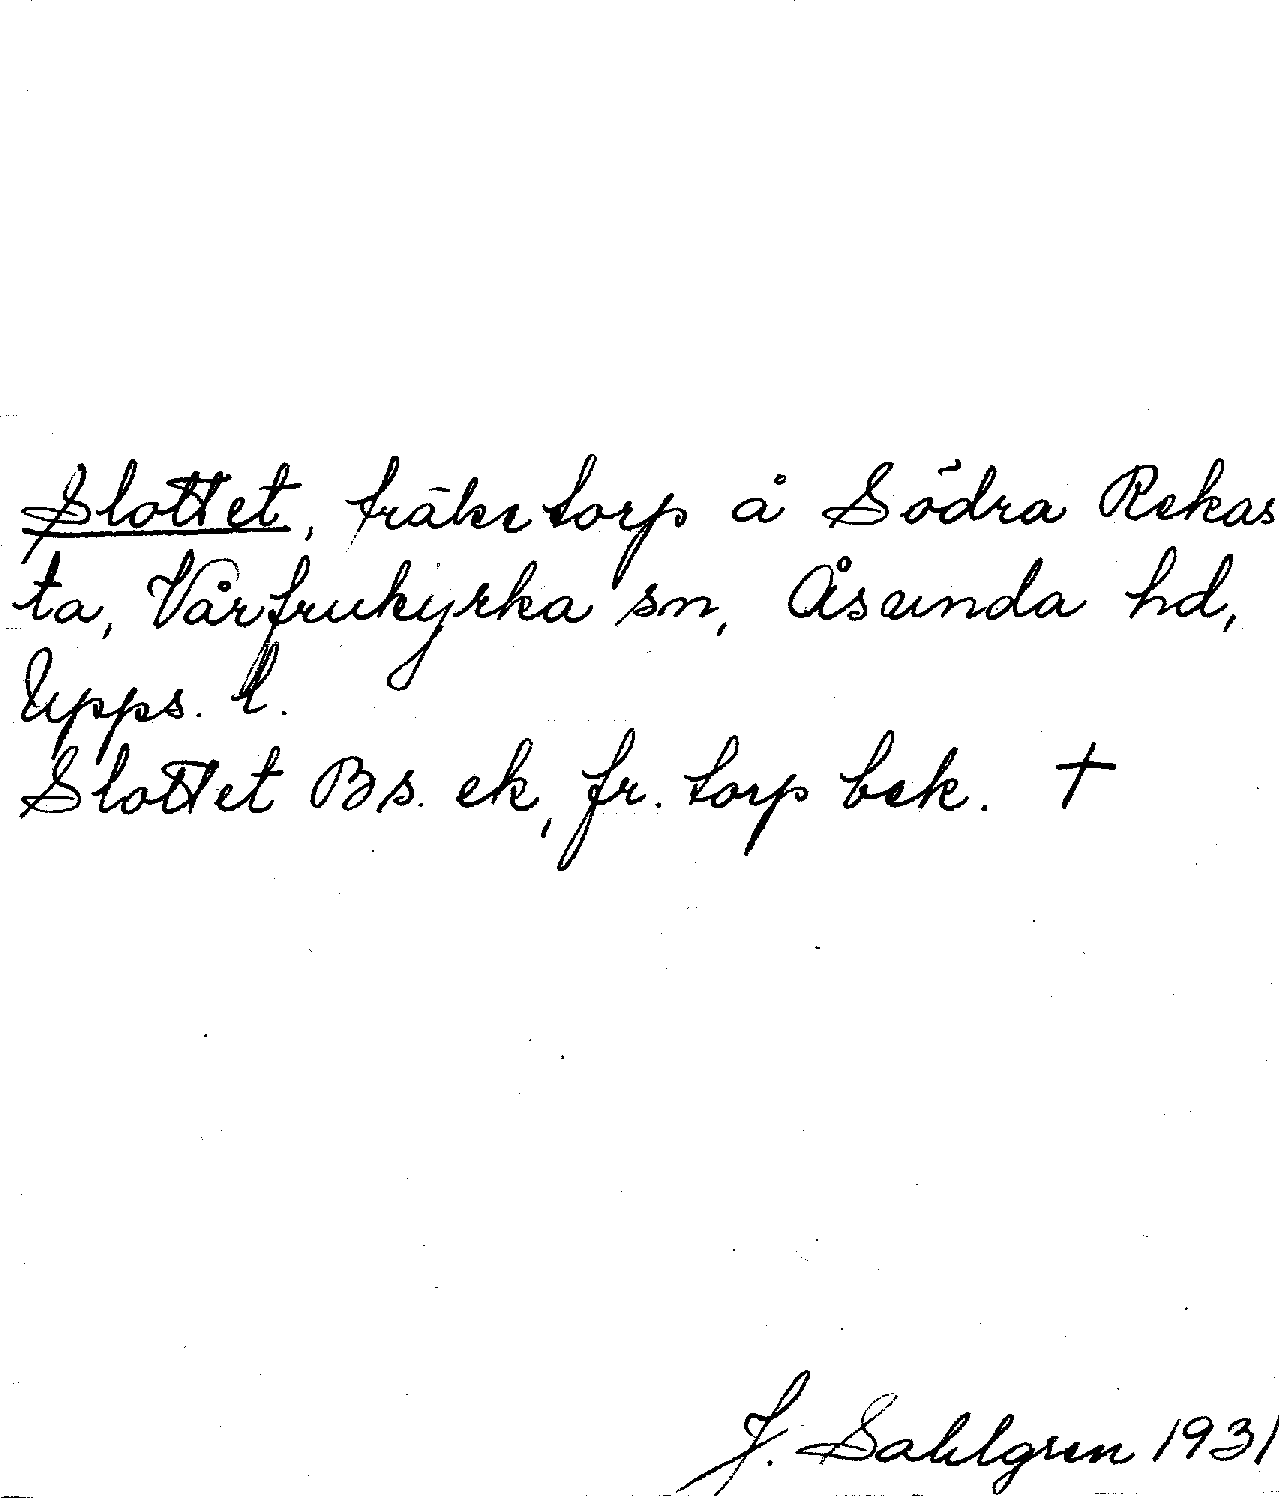 Slottet, fräkne torp å Södra Rekas
ta, Vårfrukyrka sn, Åsunda hd,
Upps. l.
Slottet Bs. ek, fr. torp bek. +
J. Sahlgren 1931